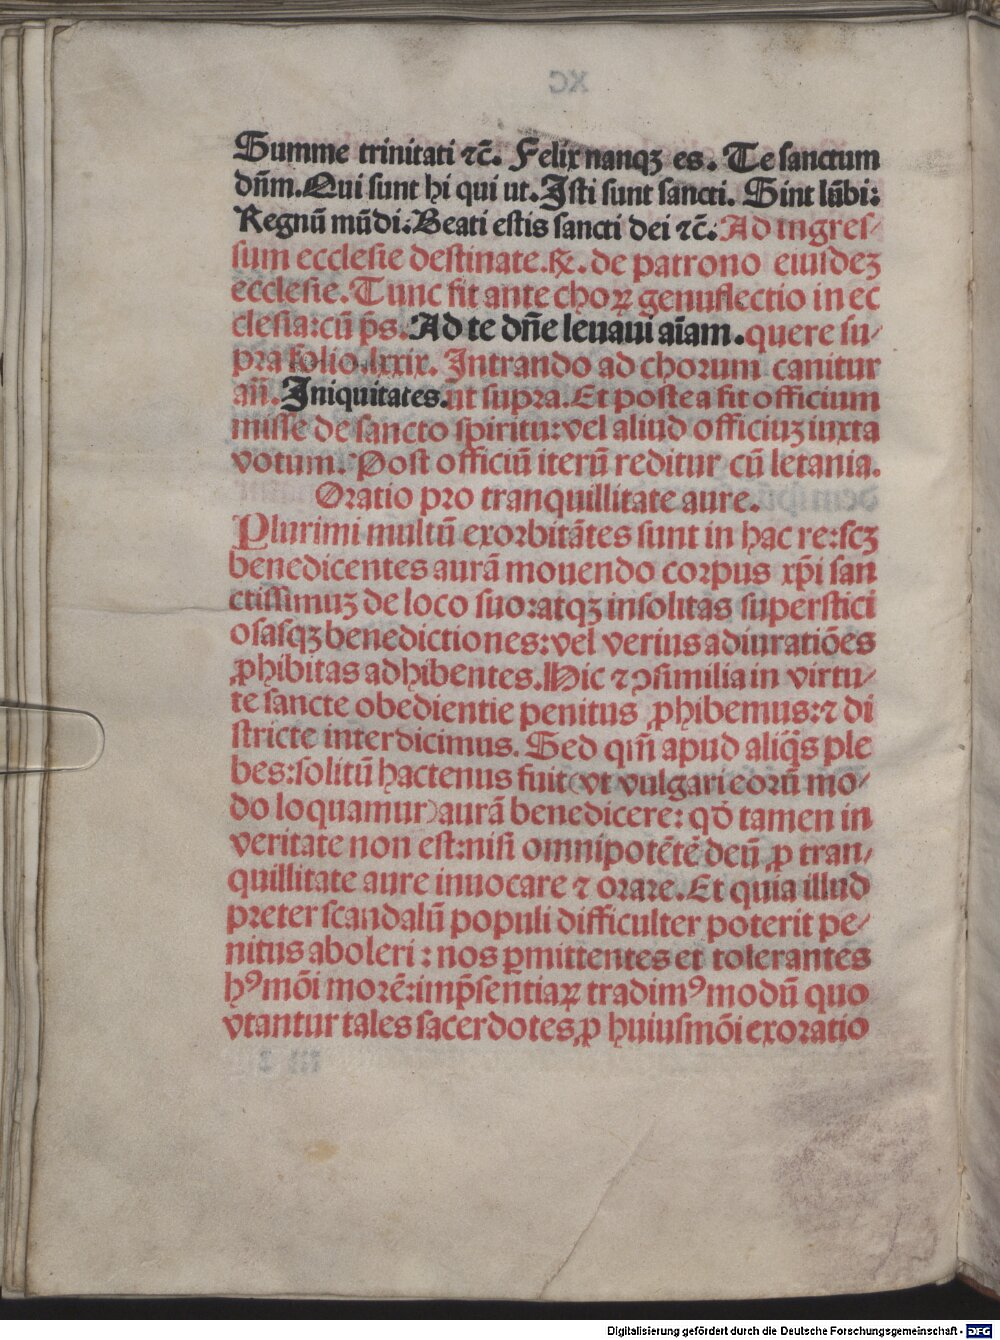 Summe trinitati ⁊c̄. Felix nanqꝫ es. Te sanctum
dn̄m. Qui sunt hi qui ut. Isti sunt sancti. Sint lūbi:
Regnū mūdi: Beati estis sancti dei ⁊c̄: Ad ingres⸗
sum ecclesie destinate. ℟. de patrono eiusdeꝫ
ecclesie. Tunc fit ante choꝝ genuflectio in ec
clesia: cū p̄s. Ad te dn̄e leuaui aīam. quere su⸗
pra folio. lxxix. Intrando ad chorum canitur
an̄. Iniquitates. ut supra. Et postea fit officium
misse de sancto spiritu: vel aliud officiuꝫ iuxta
votum. Post officiū iterū reditur cū letania.
Oratio pro tranquillitate aure.
Plurimi multū exorbitātes sunt in hac re: scꝫ
benedicentes aurā mouendo corpus xp̄i san
ctissimuꝫ de loco suo: atqꝫ insolitas superstici
osasqꝫ benedictiones: vel verius adiuratiōes
ꝓhibitas adhibentes. Hic ⁊ ꝯsimilia in virtu⸗
te sancte obedientie penitus ꝓhibemus: ⁊ di
stricte interdicimus. Sed qm̄ apud aliq̄s ple
bes: solitū hactenus fuit (vt vulgari eorū mo⸗
do loquamur) aurā benedicere: qd̓ tamen in
veritate non est: nisi omnipotētē deū ꝓ tran⸗
quillitate aure inuocare ⁊ orare. Et quia illud
preter scandalū populi difficulter poterit pe⸗
nitus aboleri: nos ꝑmittentes et tolerantes
hꝰmōi morē: imp̄sentiaꝝ tradimꝰ modū quo
vtantur tales sacerdotes, ꝓ huiusmōi exoratio
Digitalisierung gefördert durch die Deutsche Forschungsgemeinschaft - DFG